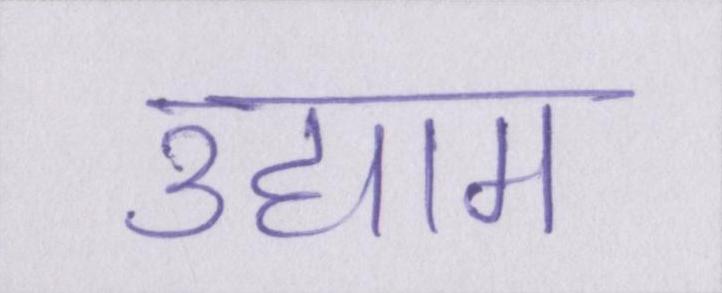 उद्याम